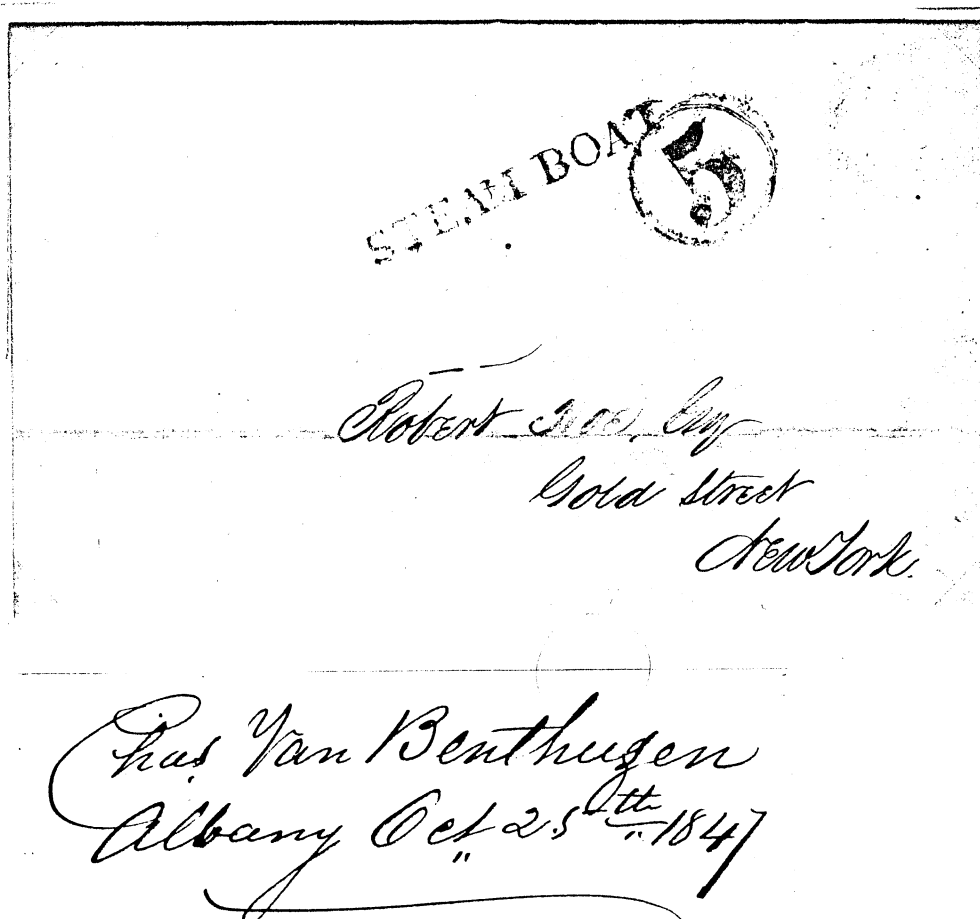 STEAM BOAT 5
Robert Hoe, Esq
Gold Street
New York.
Chas. Van Benthuysen
Albany Oct 25th 1847